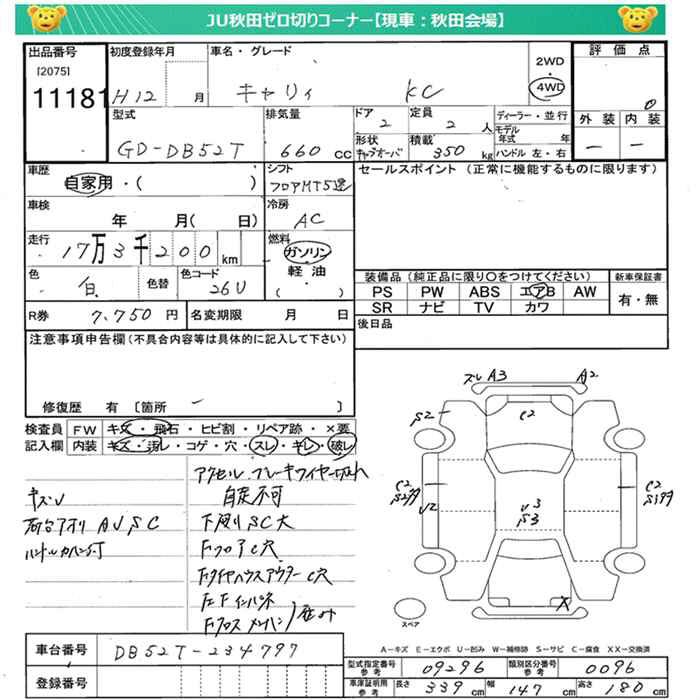 JU秋田ゼロ切りコーナー【現車：秋田会場】
出品番号 初度登録年月 車名・グレード 2WD 評価点
[2075] 4WD 0
11181 H12 月 キャリィ KC 外装 内装
型式 排気量 ドア 定員 ディーラー・並行
GD-DB52T 660 cc 2 2 人 モデル年式 年
形状 積載
キャブオーバ 350 kg ハンドル 左・右 － －
車歴 シフト セールスポイント (正常に機能するものに限ります)
自家用・( ) フロアMT5速
車検 冷房
年 月( 日) AC
走行 燃料
17万3千200 km ガソリン
軽油
( )
色 色替 色コード
白 26U
装備品 (純正品に限り○をつけてください) 新車保証書
PS PW ABS エアB AW 有・無
SR ナビ TV カワ
R券 7,750 円 名変期限 月 日 後日品
注意事項申告欄 (不具合内容等は具体的に記入して下さい)
修復歴 有 〔箇所 〕
検査員 FW キズ・飛石・ヒビ割・リペア跡・×要
記入欄 内装 キズ・汚レ・コゲ・穴・スレ・キレ・破レ
アクセル、ブレーキワイヤー切れ
自走不可
キズU
荷台アオリ AUSC
下廻りSC大
FフロアC穴
FタイヤハウスアウターC穴
左FインパネI
Fクロスメンバ
ズレ A3 A2
S2 C2
C2 C2
U2
U3
S3
X
スペア
A－キズ E－エクボ U－凹み W－補修跡 S－サビ C－腐食 XX－交換済
車台番号 DB52T-234797
登録番号
型式指定番号 参考 09296 類別区分番号 参考 0096
車庫証明用 参考 長さ 339 cm 幅 147 cm 高さ 180 cm